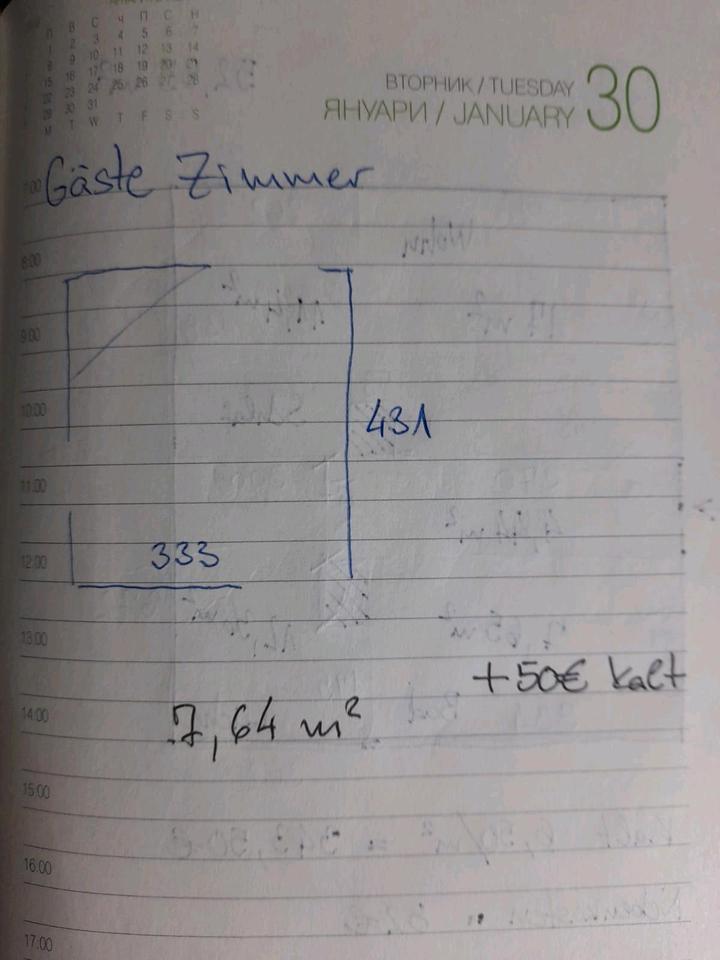 П В С Ч П С Н
1 2 3 4 5 6 7
8 9 10 11 12 13 14
15 16 17 18 19 20 21
22 23 24 25 26 27 28
29 30 31
M T W T F S S
ВТОРНИК / TUESDAY
ЯНУАРИ / JANUARY 30
7:00
Gäste Zimmer
8:00
9:00
10:00
431
11:00
12:00
333
13:00
+50€ kalt
14:00
7,64 m²
15:00
16:00
17:00